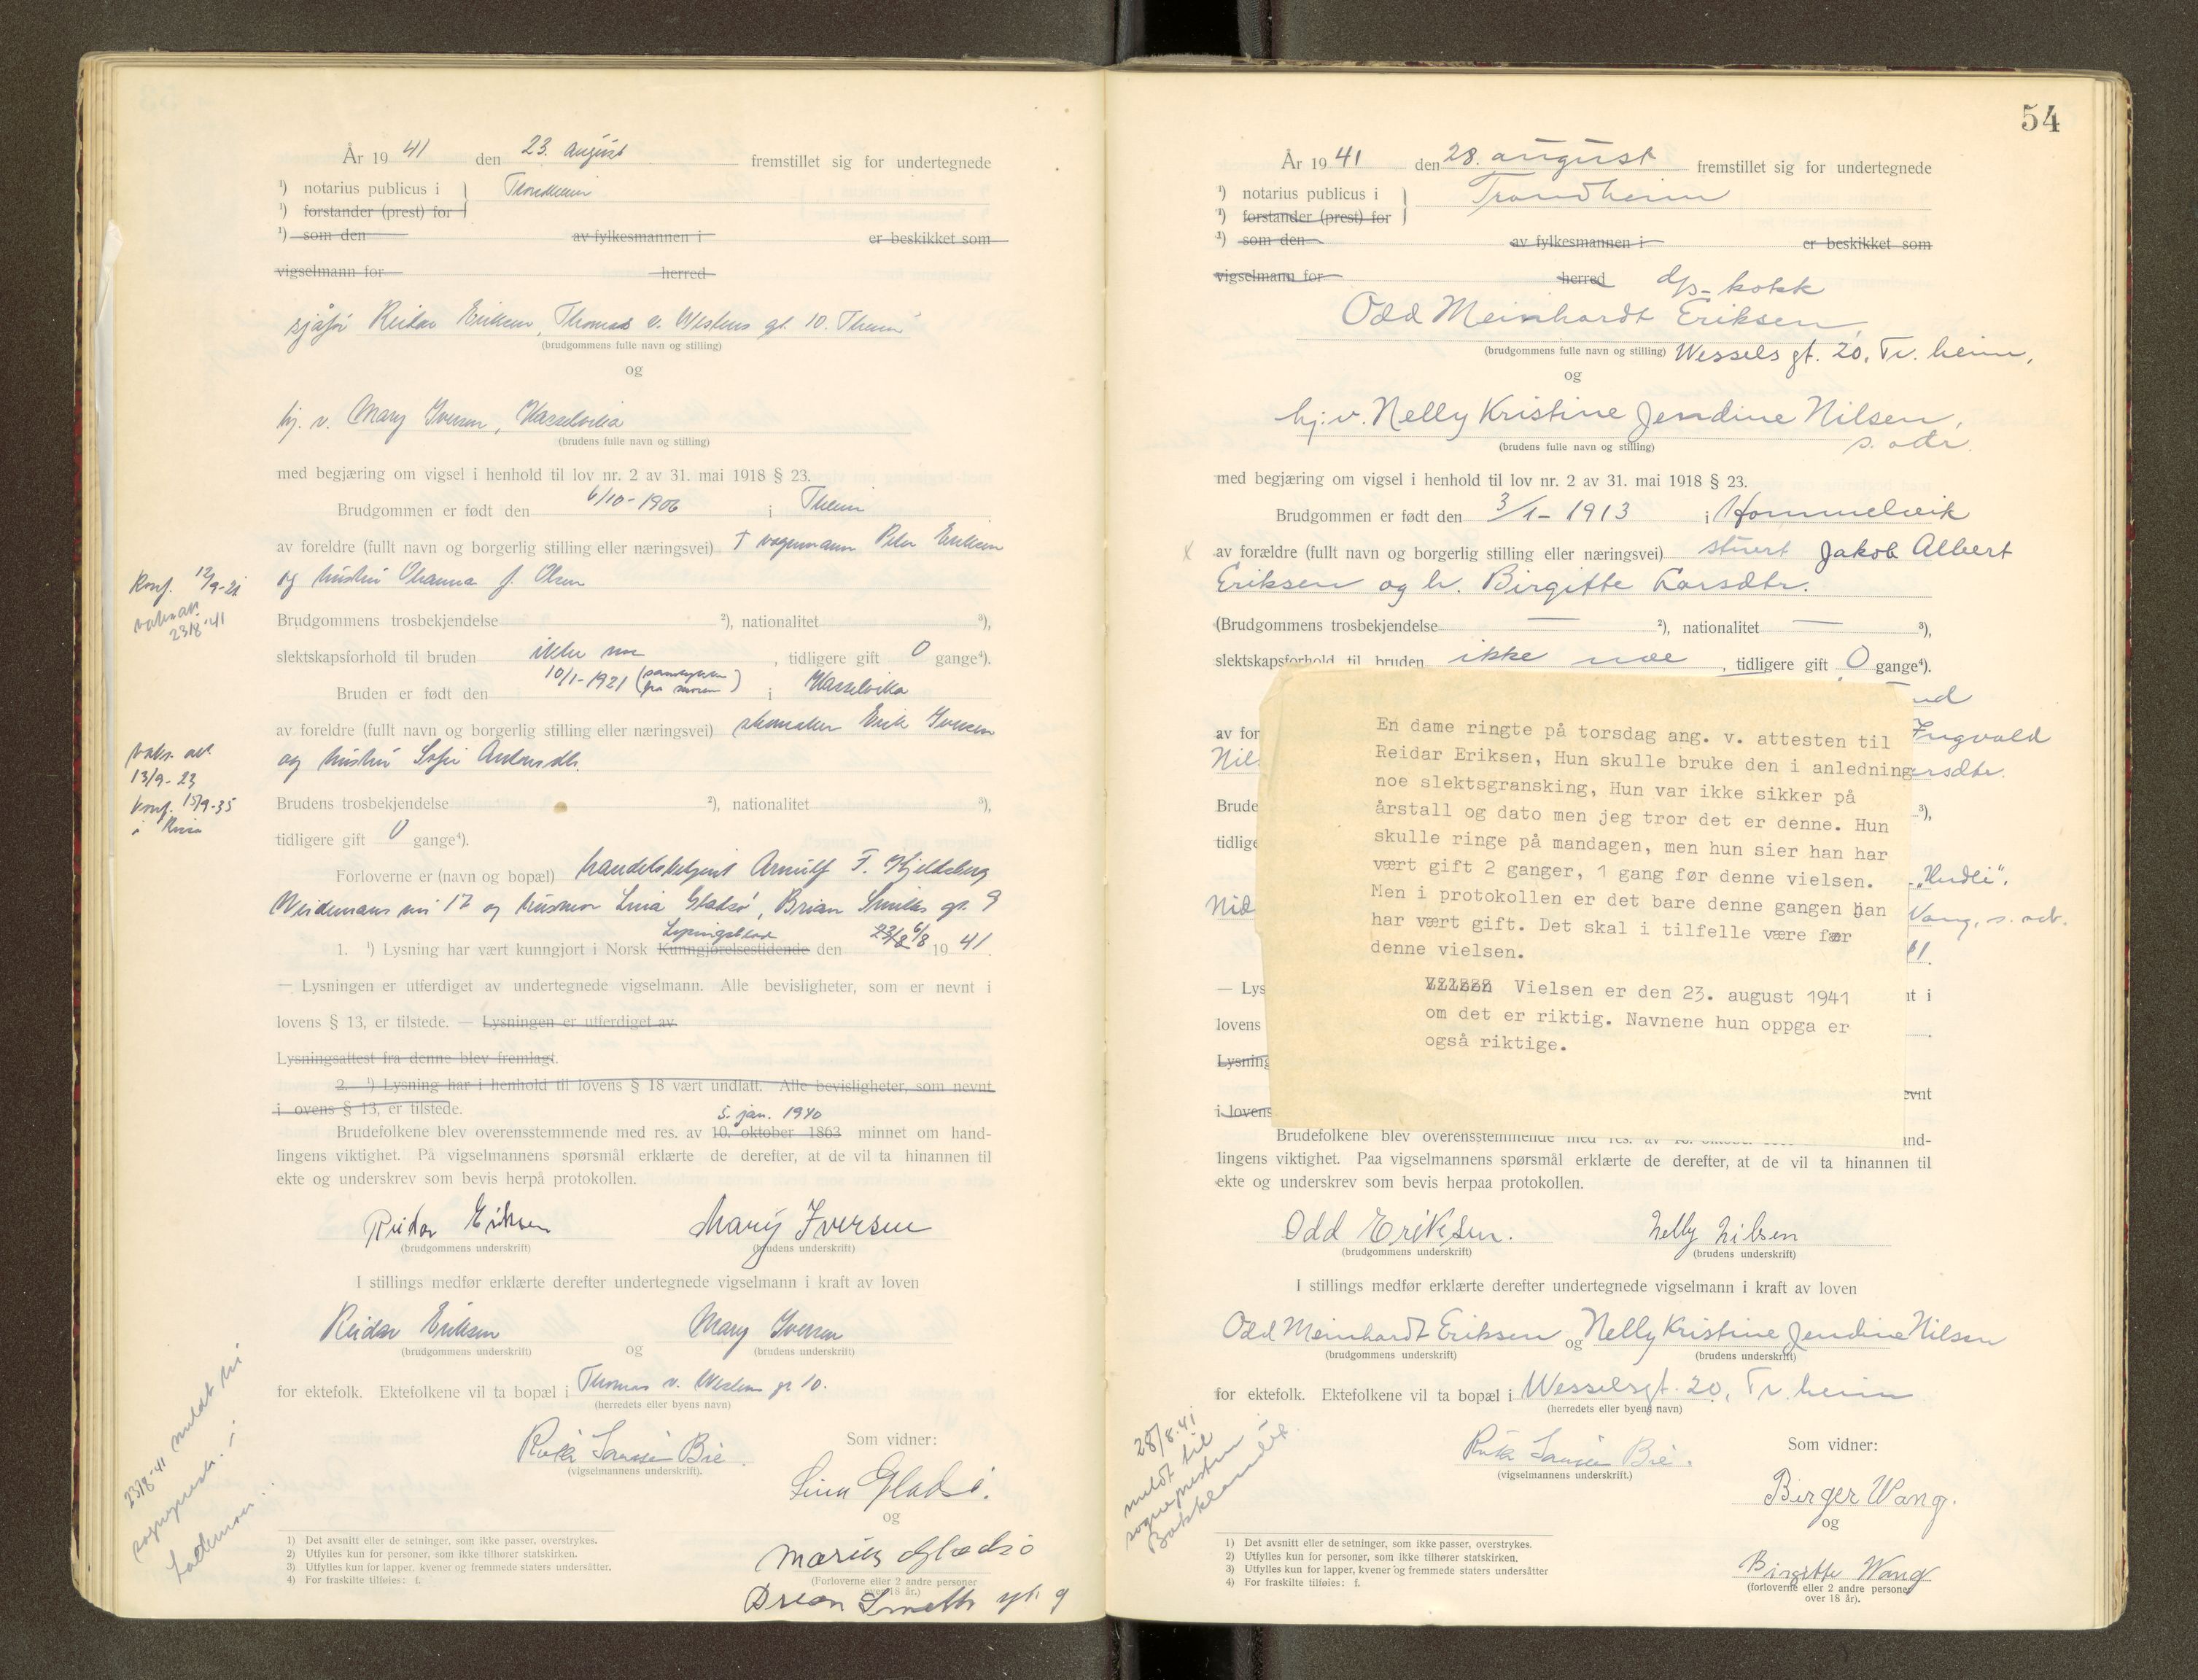 År 19 41 den 23. august fremstillet sig for undertegnede
¹) notarius publicus i } Trondheim
¹) forstander (prest) for
¹) som den av fylkesmannen i er beskikket som
vigselmann for herred
sjåfør Reidar Eriksen, Thomas v. Westens gt. 10. Tr.heim
(brudgommens fulle navn og stilling)
og
hj. v. Mary Iversen, Hasselvika
(brudens fulle navn og stilling)
med begjæring om vigsel i henhold til lov nr. 2 av 31. mai 1918 § 23.
Brudgommen er født den 6/10-1906 i Tr.heim
av foreldre (fullt navn og borgerlig stilling eller næringsvei) † vognmann Peder Eriksen
og hustru Ohanna f. Olsen
Konf. 12/9-21
vaks.att.
23/8-41
Brudgommens trosbekjendelse ²), nationalitet ³),
slektskapsforhold til bruden ikke noe, tidligere gift 0 gange⁴).
Bruden er født den 10/1-1921 (samtykke fra moren) i Hasselvika
av foreldre (fullt navn og borgerlig stilling eller næringsvei) skomaker Erik Iversen
og hustru Sofie
vaks. att.
13/9-23
Konf. 15/9-35
i Rissa
Brudens trosbekjendelse ²), nationalitet ³),
tidligere gift 0 gange⁴).
Forloverne er (navn og bopæl) Arnulf F. Hjeldsberg
Weidemans vei 17 og husmor Lina Gladsø, Brian Smiths gt. 9
1. ¹) Lysning har vært kunngjort i Norsk Kunngjørelsestidende Lysingsblad den 23/8 6/8 19 41.
— Lysningen er utferdiget av undertegnede vigselmann. Alle bevisligheter, som er nevnt i
lovens § 13, er tilstede. — Lysningen er utferdiget av
Lysningsattest fra denne blev fremlagt.
2. ¹) Lysning har i henhold til lovens § 18 vært undlatt. Alle bevisligheter, som nevnt
i lovens § 13, er tilstede.
5. jan. 1940
Brudefolkene blev overensstemmende med res. av 10. oktober 1863 minnet om hand-
lingens viktighet. På vigselmannens spørsmål erklærte de derefter, at de vil ta hinannen til
ekte og underskrev som bevis herpå protokollen.
Reidar Eriksen Mary Iversen
(brudgommens underskrift) (brudens underskrift)
I stillings medfør erklærte derefter undertegnede vigselmann i kraft av loven
Reidar Eriksen og Mary Iversen
(brudgommens underskrift) (brudens underskrift)
for ektefolk. Ektefolkene vil ta bopæl i Thomas v. Westens gt 10.
(herredets eller byens navn)
23/8-41 meldt til
sogneprest. i
Lademoen
(vigselmannens underskrift).
Som vidner:
Lina Gladsø.
og
Marius Gladsø
(Forloverne eller 2 andre personer
over 18 år.)
Brian Smiths gt. 9
1) Det avsnitt eller de setninger, som ikke passer, overstrykes.
2) Utfylles kun for personer, som ikke tilhører statskirken.
3) Utfylles kun for lapper, kvener og fremmede staters undersåtter.
4) For fraskilte tilføies: f.
54
År 19 41 den 28. august fremstillet sig for undertegnede
¹) notarius publicus i } Trondheim
¹) forstander (prest) for
²) som den av fylkesmannen i er beskikket som
vigselmann for herred
d/s- kokk
Odd Meinhardt Eriksen,
(brudgommens fulle navn og stilling) Wessels gt. 20, Tr. heim,
og
hj. v. Nelly Kristine Jendine Nilsen,
(brudens fulle navn og stilling) s. adr.
med begjæring om vigsel i henhold til lov nr. 2 av 31. mai 1918 § 23.
Brudgommen er født den 3/1- 1913 i Hommelvik
x av forældre (fullt navn og borgerlig stilling eller næringsvei) stuert Jakob Albert
Eriksen og h. Birgitte Larsdtr.
(Brudgommens trosbekjendelse — ²), nationalitet — ³),
slektskapsforhold til bruden ikke noe, tidligere gift 0 gange⁴).
av for Ingvald
Nil
Brude ³),
tidlige
"Hudli".
Nid Vang, s. adr.
En dame ringte på torsdag ang. v. attesten til
Reidar Eriksen, Hun skulle bruke den i anledning
noe slektsgransking, Hun var ikke sikker på
årstall og dato men jeg tror det er denne. Hun
skulle ringe på mandagen, men hun sier han har
vært gift 2 ganger, 1 gang før denne vielsen.
Men i protokollen er det bare denne gangen han
har vært gift. Det skal i tilfelle være før
denne vielsen.
Vielsen er den 23. august 1941
om det er riktig. Navnene hun oppga er
også riktige.
— Lys nt i
lovens
Lysning
evnt
i lovens
Brudefolkene blev overensstemmende med res. av and-
lingens viktighet. Paa vigselmannens spørsmål erklærte de derefter, at de vil ta hinannen til
ekte og underskrev som bevis herpaa protokollen.
Odd Eriksen. Nelly Nilsen
(brudgommens underskrift) (brudens underskrift)
I stillings medfør erklærte derefter undertegnede vigselmann i kraft av loven
Odd Meinhardt Eriksen og Nelly Kristine Jendine Nilsen
(brudgommens underskrift) (brudens underskrift)
for ektefolk. Ektefolkene vil ta bopæl i Wesselsgt. 20, Tr. heim
(herredets eller byens navn)
28/8.41
meldt til
sognepresten i
Bakklandet
(vigselmannens underskrift.)
Som vidner:
Birger Wang.
og
Birgitte Wang
(forloverne eller 2 andre personer
over 18 år).
1) Det avsnitt eller de setninger, som ikke passer, overstrykes.
2) Utfylles kun for personer, som ikke tilhører statskirken.
3) Utfylles kun for lapper, kvener og fremmede staters undersåtter
4) For fraskilte tilføies: f.